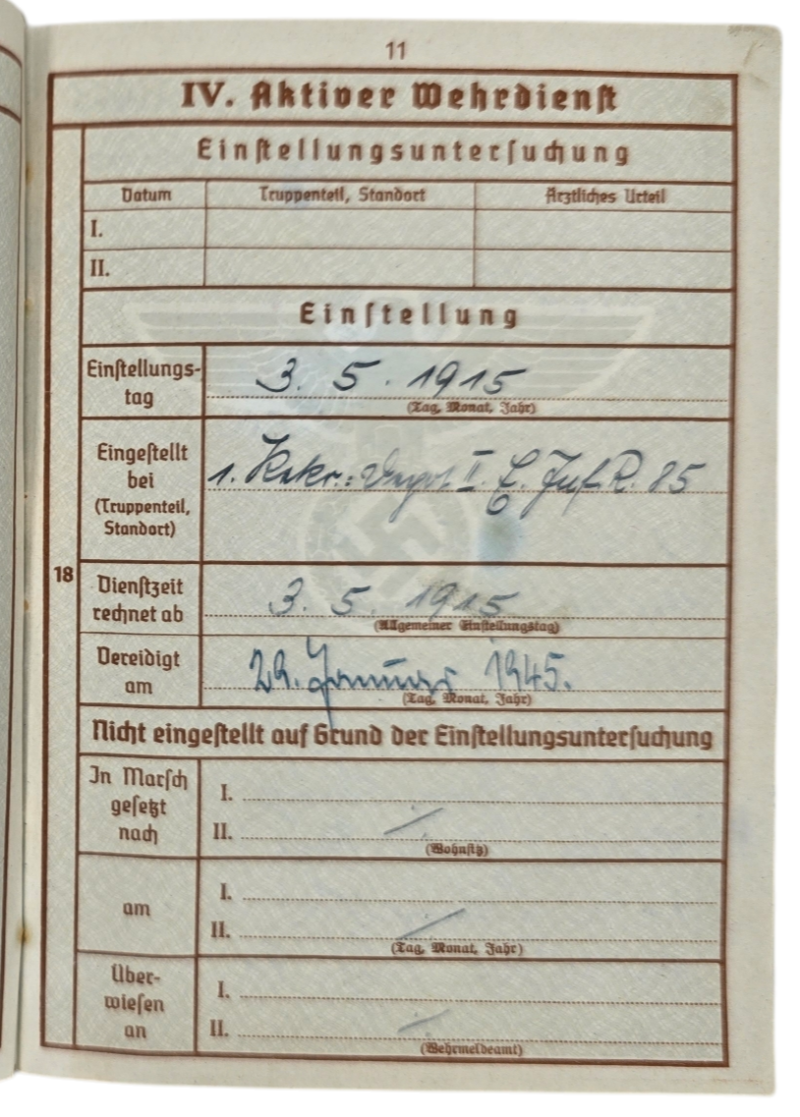 11
IV. Aktiver Wehrdienst
Einstellungsuntersuchung
Datum Truppenteil, Standort Ärztliches Urteil
I.
II.
Einstellung
Einstellungs-
tag
3. 5. 1915
(Tag, Monat, Jahr)
Eingestellt
bei
(Truppenteil,
Standort)
1. Rekr.: Depot I. E. Inf. R. 85
18
Dienstzeit
rechnet ab
3. 5. 1915
(Allgemeiner Einstellungstag)
Vereidigt
am
29. Januar 1945.
(Tag, Monat, Jahr)
Nicht eingestellt auf Grund der Einstellungsuntersuchung
In Marsch
gesetzt
nach
I.
II. ⁒
(Wohnsitz)
am
I.
II. ⁒
(Tag, Monat, Jahr)
Über-
wiesen
an
I.
II. ⁒
(Wehrmeldeamt)